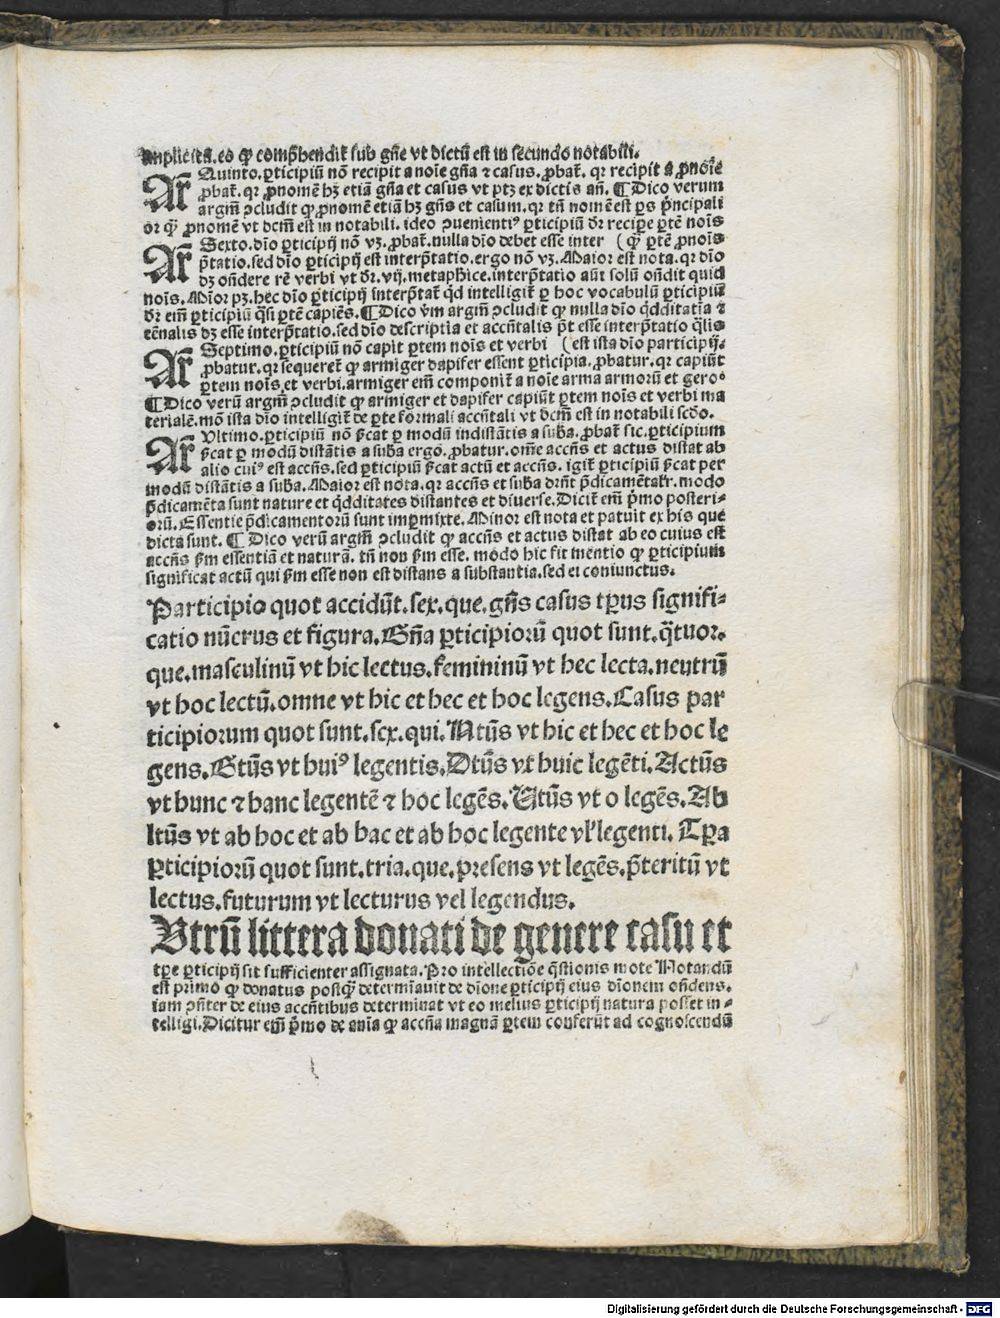 implicita.eo qꝫ comp̃hendit̃ sub gñe vt dictũ est in secundo notabili.
Ar Quinto.ꝑticipiũ nõ recipit a noĩe gñia ⁊ casus.ꝓbat̃.qꝛ recipit a ꝓnoĩe
ꝓbat̃.qꝛ ꝓnomẽ hꝫ etiã gñia et casus vt ptꝫ ex dictis añ. ¶ Dico verum
argm̃ ↄcludit qꝫ ꝓnomẽ etiã hꝫ gñs et casum.qꝛ tñ nomẽ est ꝑs p̃ncipali
or qꝫ̃ ꝓnomẽ vt dcm̃ est in notabili. ideo ↄuenienti⁹ ꝑticipiũ dr̃ recipe ꝑtẽ nois
Ar Sexto.dio ꝑticipij nõ vꝫ.ꝓbat̃.nulla dio debet esse inter (qꝫ̃ ꝑtẽ ꝓnois
p̃tatio.sed dio ꝑticipij est interp̃tatio.ergo nõ vꝫ. Maior est nota.qꝛ dio
dꝫ oñdere rẽ verbi vt dr̃.vij.metaphice.interp̃tatio aũt solũ oñdit quid
nois. Mior pꝫ.hec dio ꝑticipij interp̃tat̃ qd̃ intelligit̃ ꝑ hoc vocabulũ ꝑticipiũ
dr̃ em̃ ꝑticipiũ q̃si ꝑtẽ capiẽs. ¶ Dico vm̃ argm̃ ↄcludit qꝫ nulla dio qdditatia ⁊
eẽnalis dꝫ esse interp̃tatio.sed dio descriptia et accñtalis p̃t esse interp̃tatio q̃lis
Ar Septimo.ꝑticipiũ nõ capit ꝑtem nois et verbi (est ista dio participij.
ꝓbatur.qꝛ sequeret̃ qꝫ armiger dapifer essent ꝑticipia.ꝓbatur.qꝛ capiũt
ꝑtem nois et verbi.armiger em̃ componit̃ a noie arma armorũ et gero
¶ Dico verũ argm̃ ↄcludit qꝫ armiger et dapifer capiũt ꝑtem nois et verbi ma
terialẽ.mõ ista dio intelligit̃ de ꝑte formali accñtali vt dcm̃ est in notabili scdo.
Ar Vltimo.ꝑticipiũ nõ s̃cat ꝑ modũ indistãtis a suba.ꝓbat̃ sic.ꝑticipium
s̃cat ꝑ modũ distãtis a suba ergo.ꝓbatur.ome accñs et actus distat ab
alio cui⁹ est accñs.sed ꝑticipiũ s̃cat actũ et accñs. igit̃ ꝑticipiũ s̃cat per
modũ distãtis a suba. Maior est nota.qꝛ accñs et suba drñt p̃dicamẽtalr̃.modo
p̃dicamẽta sunt nature et qdditates distantes et diuerse. Dicit̃ em̃ p̃mo posteri-
orũ. Essentie p̃dicamentorũ sunt imp̃mixte. Minor est nota et patuit ex his que
dicta sunt. ¶ Dico verũ argm̃ ↄcludit qꝫ accñs et actus distat ab eo cuius est
accñs s̃m essentiã et naturã. tñ non s̃m esse. modo hic fit mentio qꝫ ꝑticipium
significat actũ qui s̃m esse non est distans a substantia.sed ei coniunctus.
Participio quot accidũt.sex.que.gñs casus tp̃us signifi-
catio nũerus et figura. Gña ꝑticipiorũ quot sunt.q̃tuor.
que.masculinũ vt hic lectus.femininũ vt hec lecta.neutrũ
vt hoc lectũ.omne vt hic et hec et hoc legens. Casus par
ticipiorum quot sunt.sex.qui. Ntũs vt hic et hec et hoc le
gens. Gtũs vt hui⁹ legentis. Dtũs vt huic legẽti. Actũs
vt hunc ⁊ hanc legentẽ ⁊ hoc legẽs. Vtũs vt o legẽs. Ab
ltũs vt ab hoc et ab hac et ab hoc legente vl̃ legenti. Tp̃a
ꝑticipiorũ quot sunt.tria.que.presens vt legẽs.p̃teritũ vt
lectus.futurum vt lecturus vel legendus.
Vtrũ littera donati de genere casu et
tp̃e ꝑticipij sit sufficienter assignata. Pro intellectiõe q̃stionis mote Notandũ
est primo qꝫ donatus postqꝫ̃ determĩauit de dione ꝑticipij eius dionem oñdens.
iam ↄñter de eius accñtibus determinat vt eo melius ꝑticipij natura posset in-
telligi. Dicitur em̃ p̃mo de aĩa qꝫ accñia magnã ꝑtem conferũt ad cognoscendũ
Digitalisierung gefördert durch die Deutsche Forschungsgemeinschaft - DFG